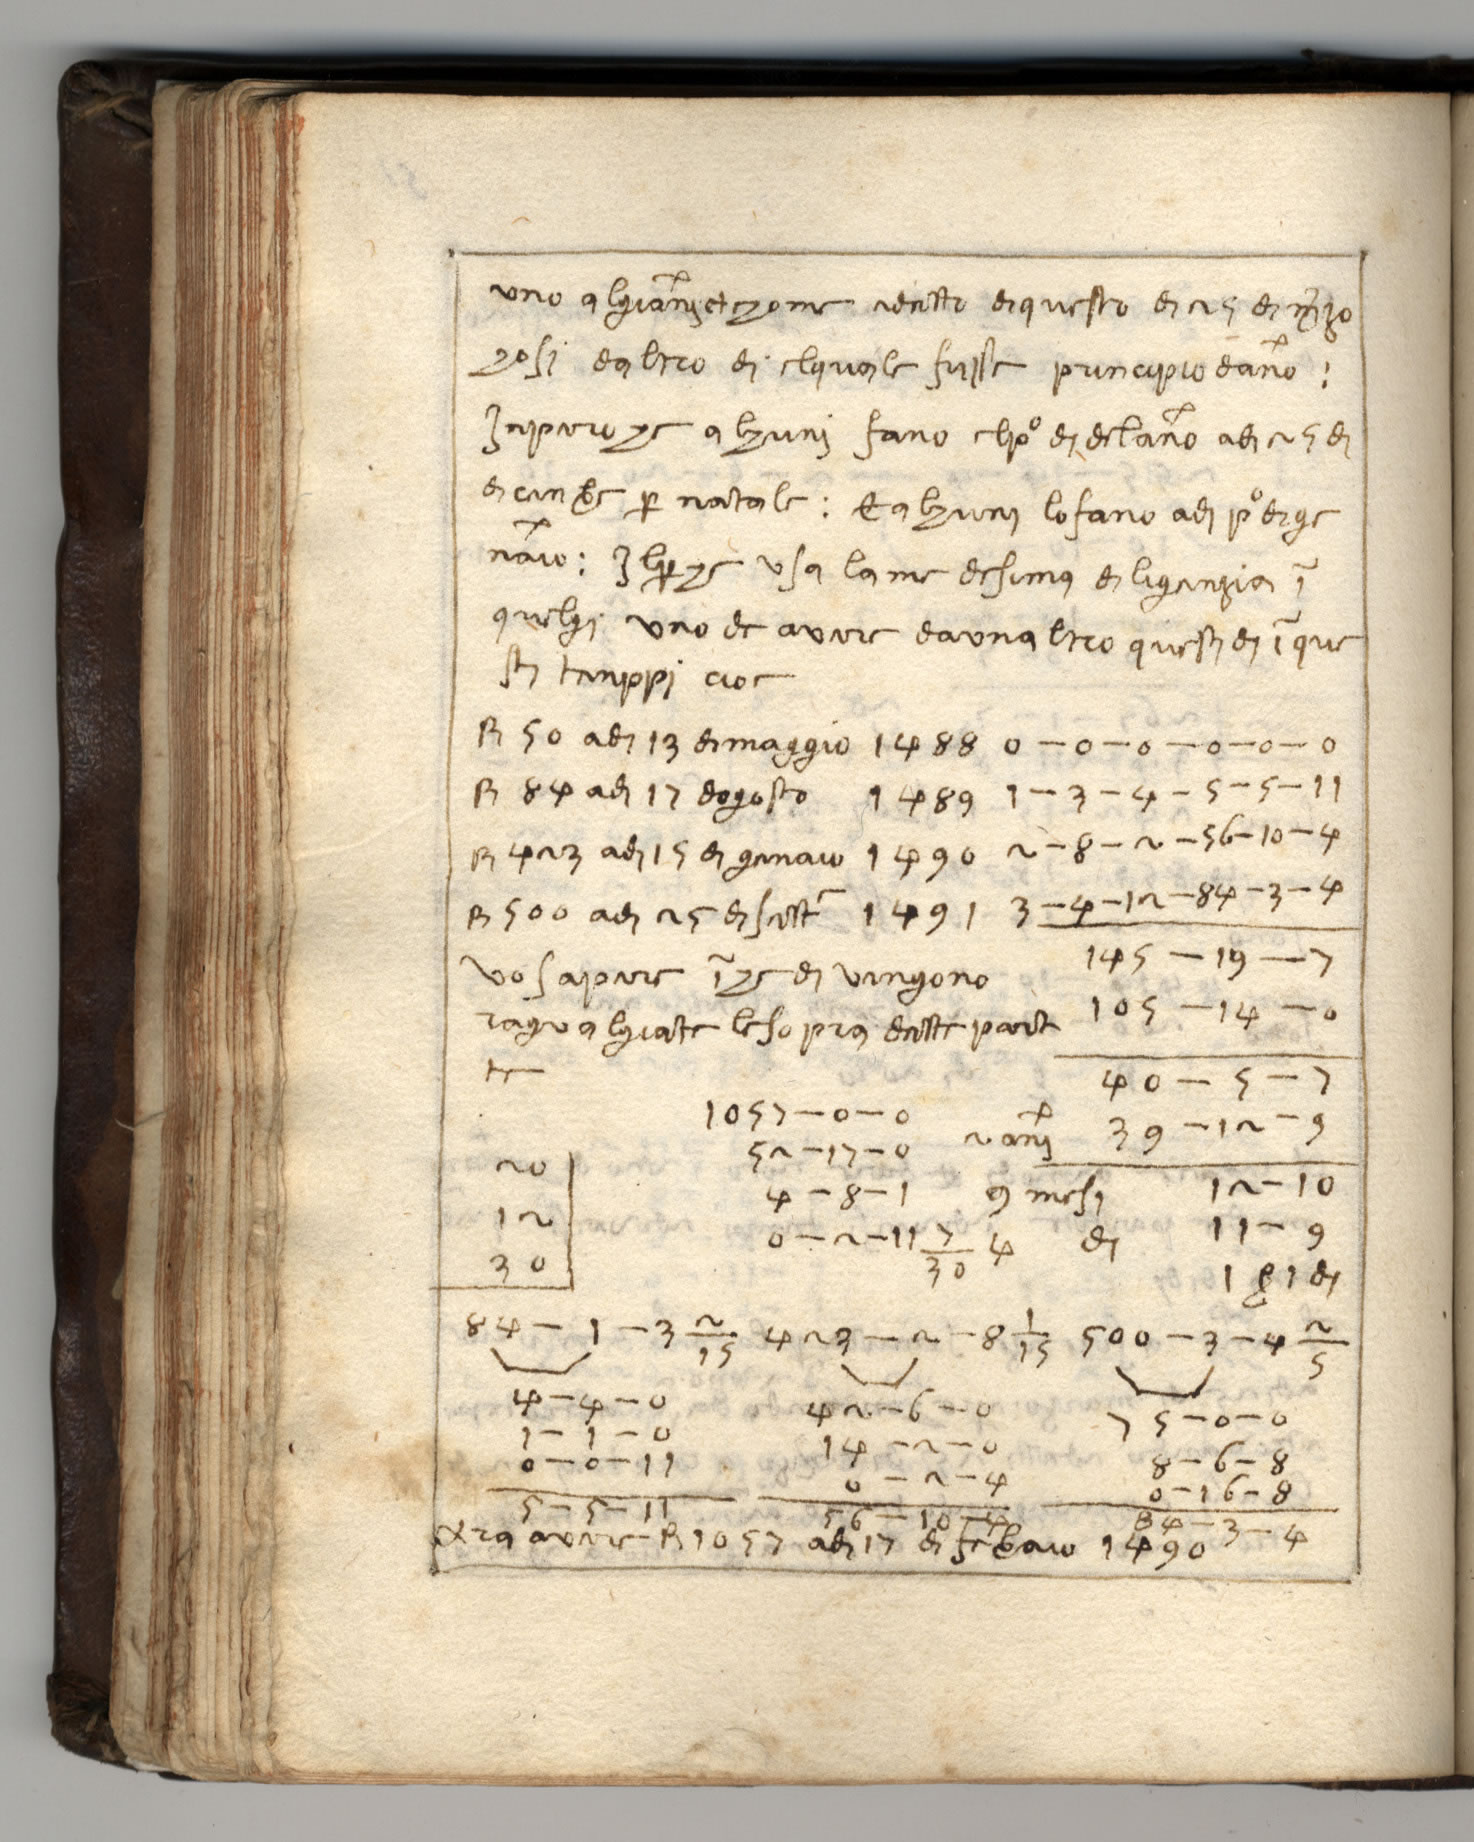 uno algiāni et chome adetto di questo di 25 di mżo
chosi daltro di elquale fusse principio dāno :
Inperoche alchuni fano elpº di delāno adi 25 di
dicenbre p natale : & alchuni lofano adi pº dige
nāio : Ilperche usa la me desima diligenzia ī
quelgi uno de avere da unaltro questi di ī que
sti tenppi cioe
R 50 adi 13 di maggio 1488 0 — 0 — 0 — 0 — 0 — 0
R 84 adi 17 dogosto 1489 1 — 3 — 4 — 5 — 5 — 11
R 423 adi 15 di genaio 1490 2 — 8 — 2 — 56 — 10 — 4
R 500 adi 25 di sett 1491 3 — 4 — 12 — 84 — 3 — 4
vo sapere ī che di vengono 145 — 19 — 7
raguagliate le sopra dette parti 105 — 14 — 0
te 40 — 5 — 7
1057 — 0 — 0 2 āni 39 — 12 — 9
52 — 17 — 0
20 4 — 8 — 1 9 mesi 12 — 10
12 0 — 2 — 11 7/30 4 di 11 — 9
30 1 1 di
84 — 1 — 3 2/15 423 — 2 — 8 1/15 500 — 3 — 4 2/5
4 — 4 — 0 42 — 6 — 0 75 — 0 — 0
1 — 1 — 0 14 — 2 — 0 8 — 6 — 8
0 — 0 — 11 0 — 2 — 4 0 — 16 — 8
5 — 5 — 11 56 — 10 — 4 84 — 3 — 4
avere R 1057 adi 17 di febraio 1490